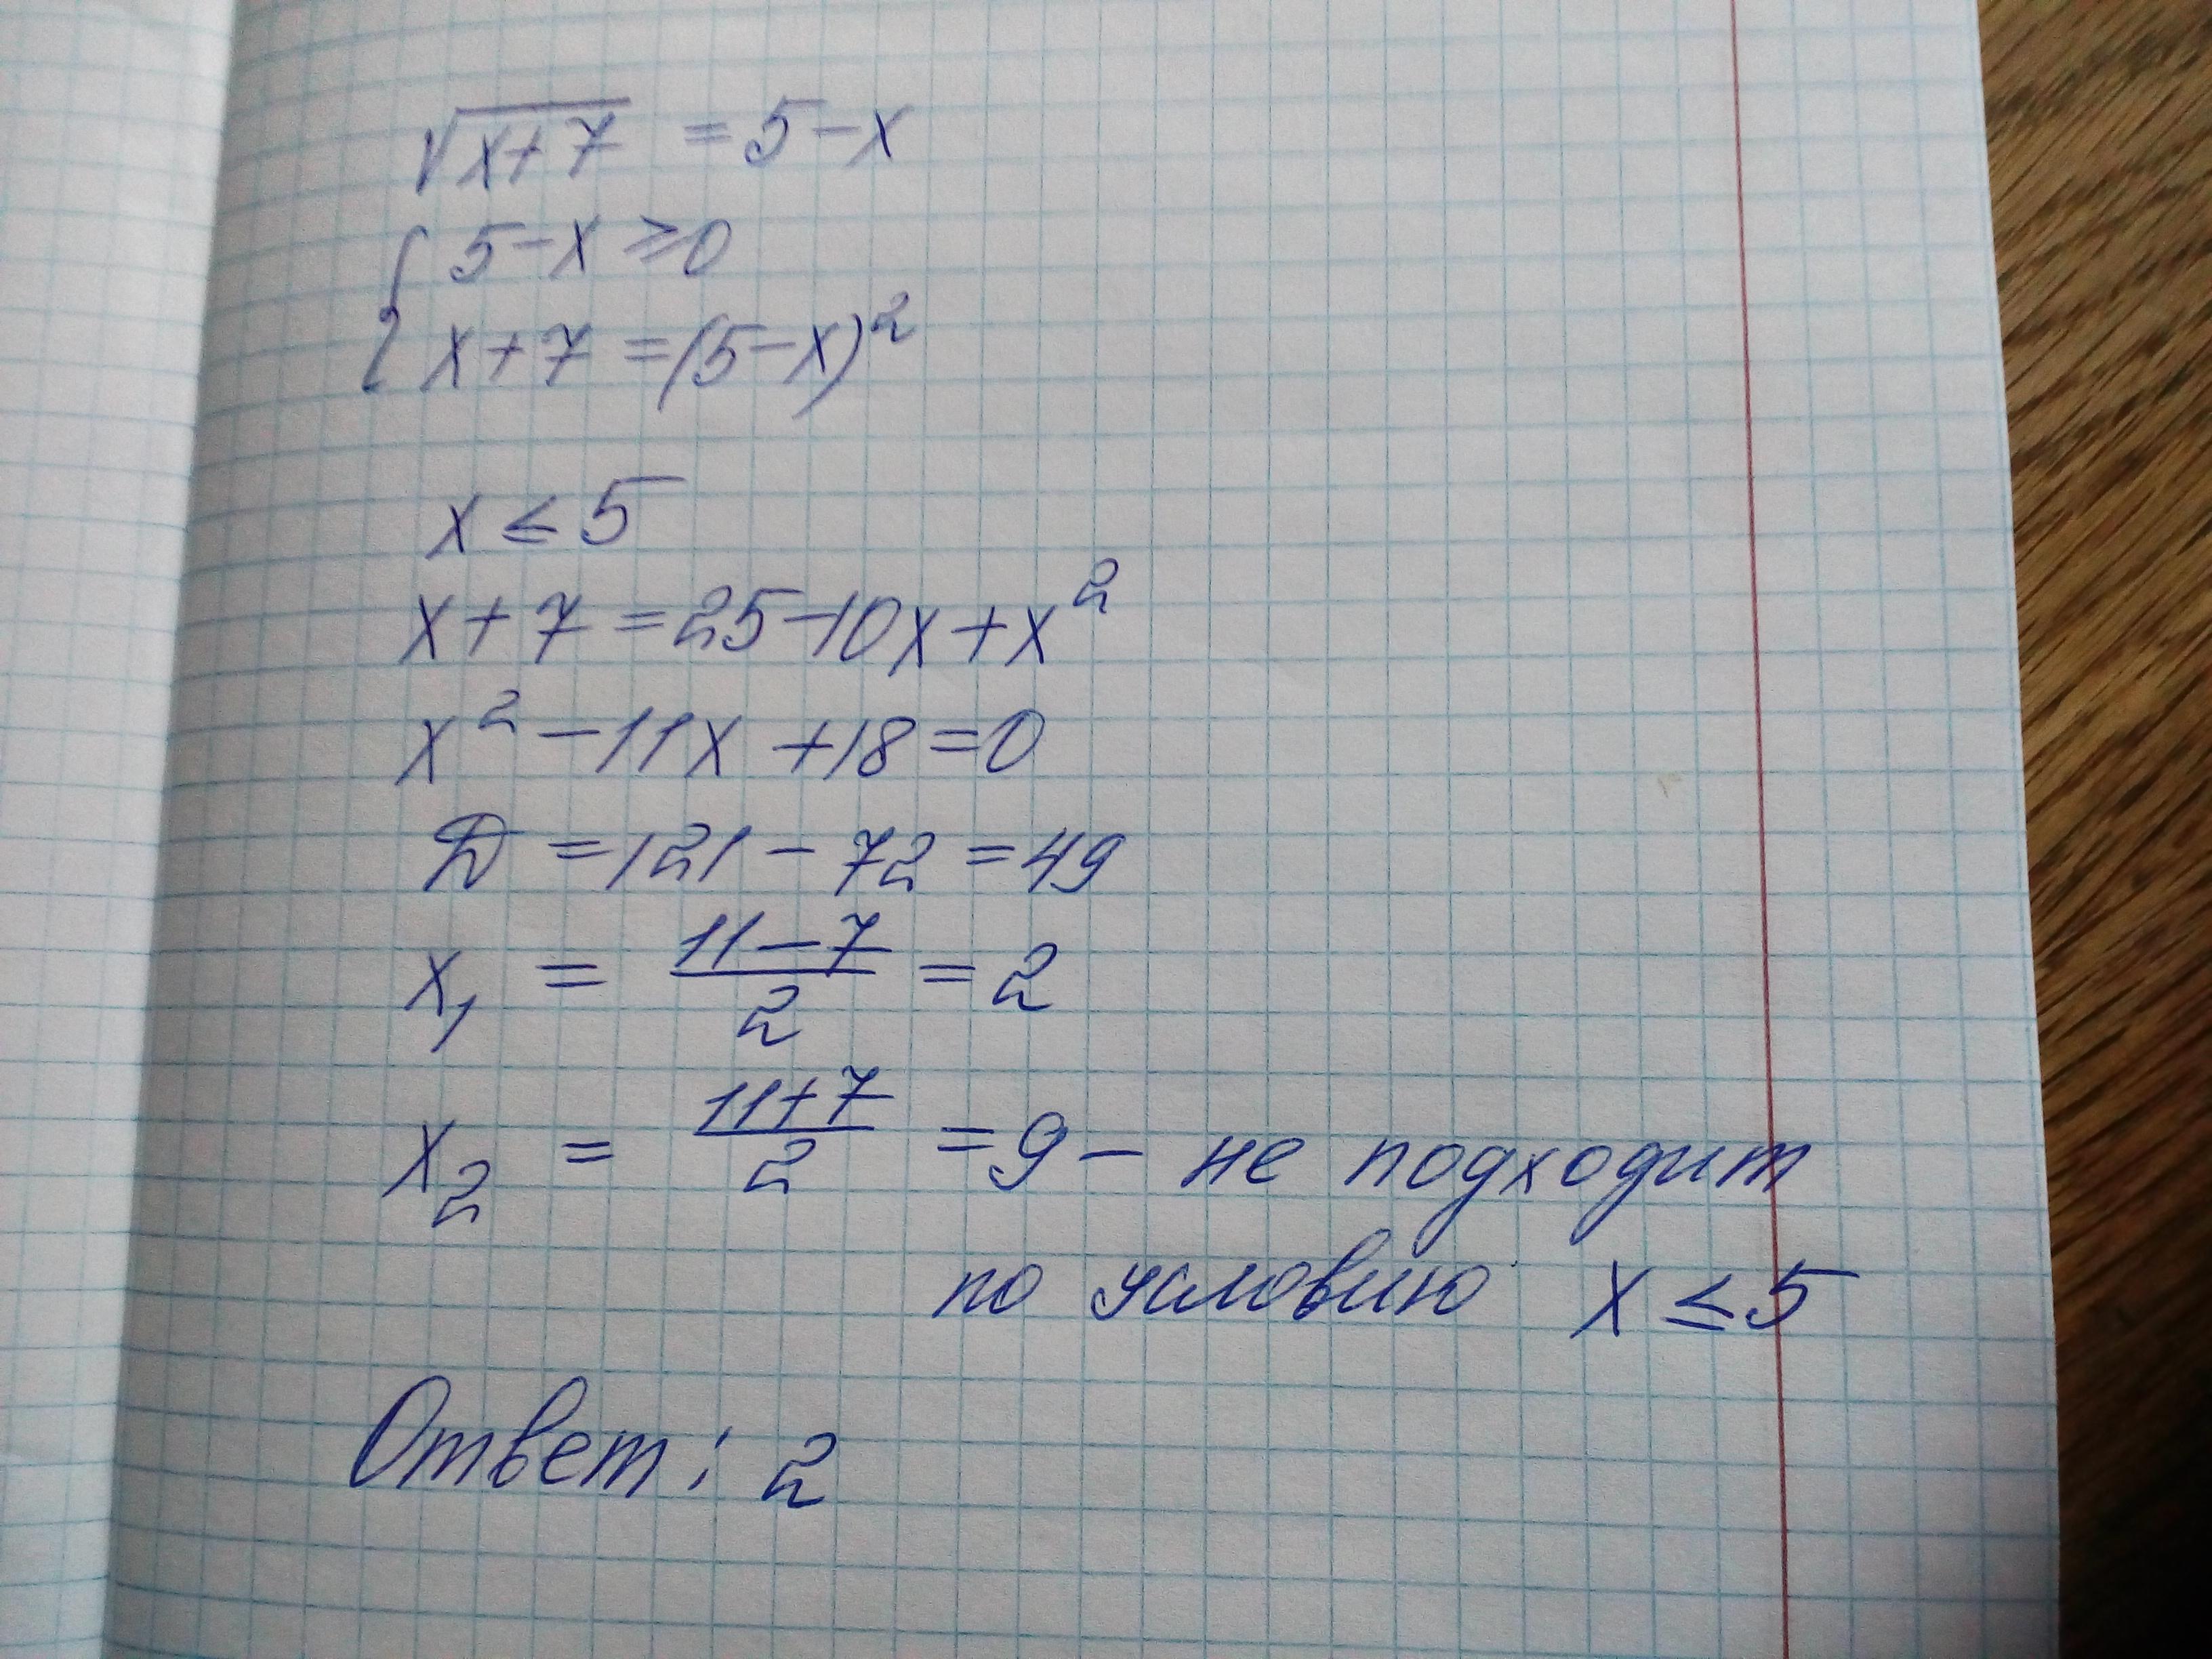 √x+7 = 5-x
{ 5-x ≥ 0
x+7 = (5-x)²
x ≤ 5
x+7 = 25-10x+x²
x² - 11x + 18 = 0
D = 121 - 72 = 49
x₁ = (11-7)/2 = 2
x₂ = (11+7)/2 = 9 - не подходит
по условию x ≤ 5
Ответ: 2